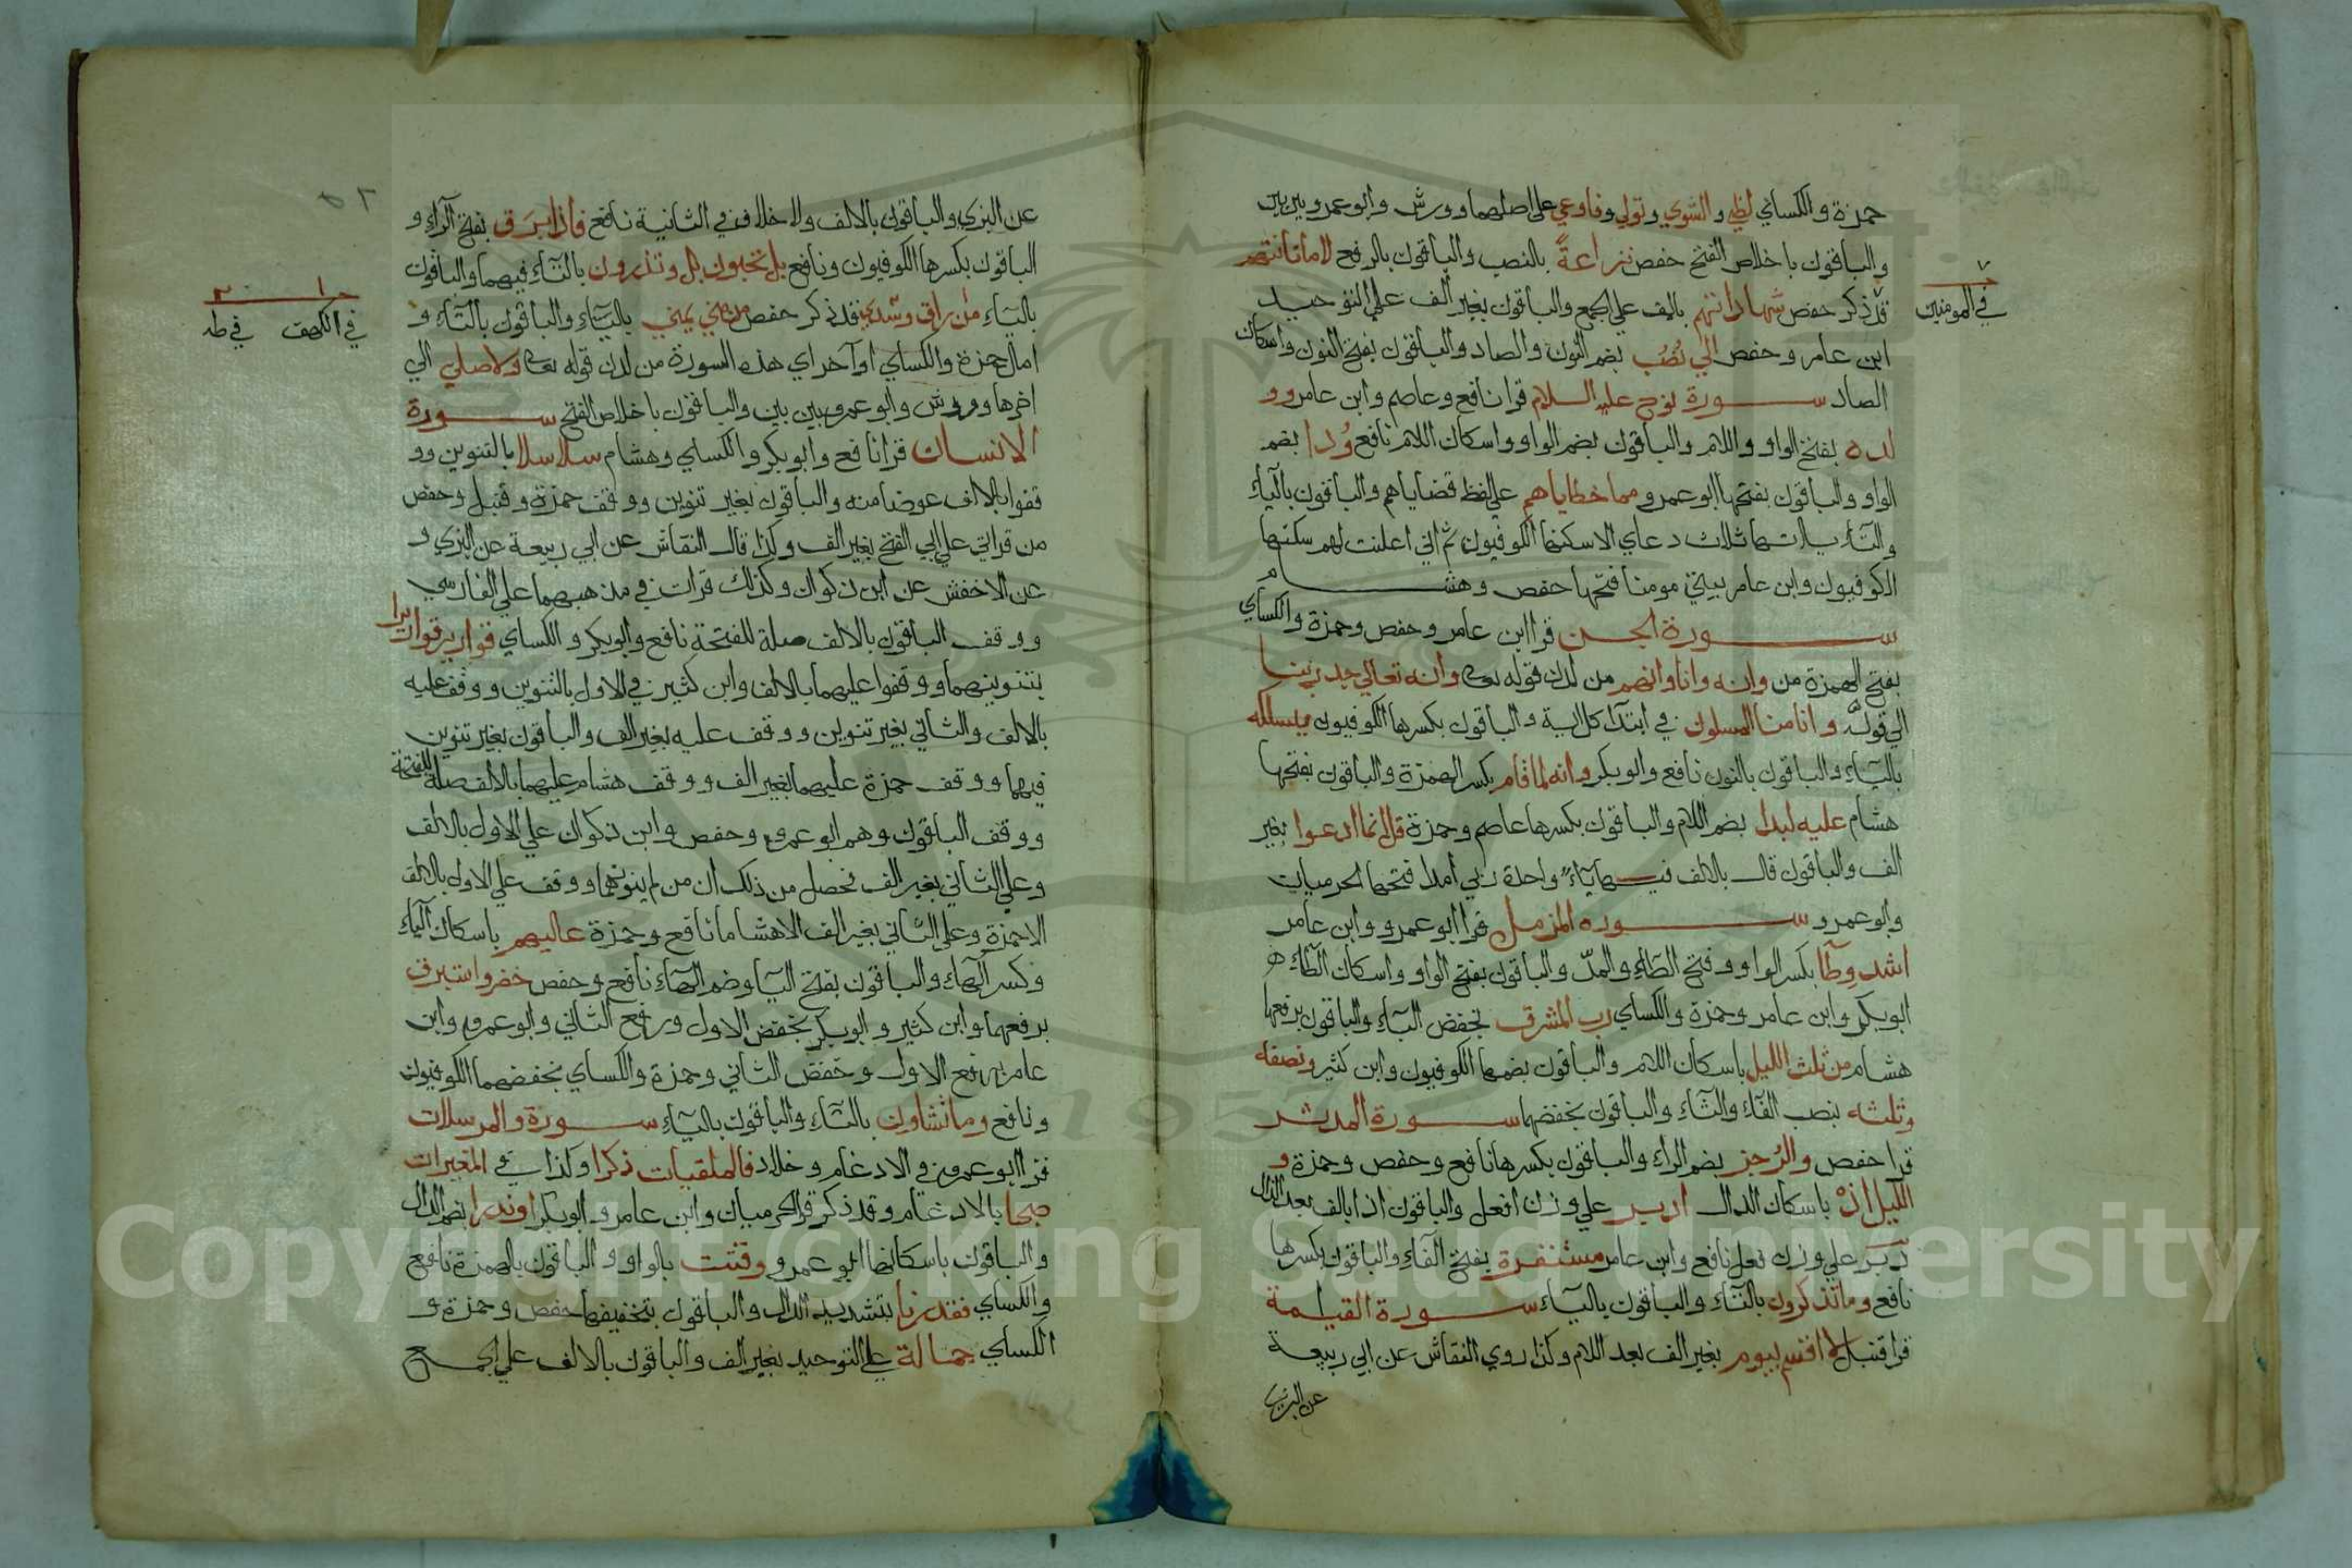 حمزة والكساي لظي والشوي وتولي وفاوعي على اصلهما وورش وابو عمرو بين بين
والباقون باخلاص الفتح حفص نزاعةً بالنصب والباقون بالرفع لاماناتهم
قد ذكر حفص بشهاداتهم بالف على الجمع والباقون بغير الف على التوحيد
في المومنين
ابن عامر وحفص الي نُصُب بضم النون والصاد والباقون بفتح النون واسكان
الصاد سورة نوح عليه السلام قرا نافع وعاصم وابن عامر وو
لده بفتح الواو واللام والباقون بضم الواو واسكان اللام نافع وُدا بضم
الواو والباقون بفتحها ابو عمرو مما خطاياهم على لفظ قضاياهم والباقون بالياء
والتاء ياتها ثلاث دعاي الا سكنها الكوفيون ثم اني اعلنت لهم سكنها
الكوفيون وابن عامر بيتي مومنا فتحها حفص وهشام
سورة الجن قرا ابن عامر وحفص وحمزة والكساي
بفتح الهمزة من وانه وانا وانهم من لدن قوله تعالى وانه تعالي جد ربنا
الي قوله وانا منا المسلمون في ابتدآ كل اية والباقون بكسرها الكوفيون يسلكه
بالياء والباقون بالنون نافع وابو بكر وانه لما قام بكسر الهمزة والباقون بفتحها
هشام عليه لبدا بضم اللام والباقون بكسرها عاصم وحمزة قل انما ادعوا بغير
الف والباقون قال بالالف فيها ياءٌ واحدة ربي أمدا فتحها الحرميان
وابو عمرو سورة المزمل قرا ابو عمرو وابن عامر
اشد وِطآ بكسر الواو وفتح الطاء والمدّ والباقون بفتح الواو واسكان الطاء
ابو بكر وابن عامر وحمزة والكساي رب المشرق بخفض الباء والباقون برفعها
هشام من ثلث الليل باسكان اللام والباقون بضمها الكوفيون وابن كثير ونصفه
وثلثه بنصب الفاء والثاء والباقون بخفضهما سورة المدثر
قرا حفص والرُجز بضم الراء والباقون بكسرها نافع وحفص وحمزة و
الليل اذْ باسكان الدال ادبر على وزن افعل والباقون اذا بالف بعد الدال
دَبَرَ علي وزن فعل نافع وابن عامر مستنفرة بفتح الفاء والباقون بكسرها
نافع وما تذكرون بالتاء والباقون بالياء سورة القيمة
قرا قنبل لا اقسم بيوم بغير الف بعد اللام وكذا روي النقاش عن ابي ربيعة
عن البزي
عن البزي والباقون بالالف ولا خلاف في الثانية نافع فاذا بَرَق بفتح الراء و
الباقون بكسرها الكوفيون ونافع بل تحبون بل وتذرون بالتاء فيهما والباقون
بالياء من راق وسدي قد ذكر حفص من مني يمني بالياء والباقون بالتاء و
في الكهف في طه
امال حمزة والكساي اواخر اي هذه السورة من لدن قوله تعالى ولا صلي الي
اخرها وورش وابو عمرو بين بين والباقون باخلاص الفتح سورة
الانسان قرا نافع وابو بكر والكساي وهشام سلاسلا بالتنوين وو
قفوا بالالف عوضا منه والباقون بغير تنوين ووقف حمزة وقنبل وحفص
من قراتي علي ابي الفتح بغير الف وكذا قال النقاش عن ابي ربيعة عن البزي و
عن الاخفش عن ابن ذكوان وكذلك قرات في مذهبهما علي الفارسي
ووقف الباقون بالالف صلة للفتحة نافع وابو بكر والكساي قواريرا قواريرا
بتنوينهما ووقفوا عليهما بالالف وابن كثير في الاول بالتنوين ووقف عليه
بالالف والثاني بغير تنوين ووقف عليه بغير الف والباقون بغير تنوين
فيهما ووقف حمزة عليهما بغير الف ووقف هشام عليهما بالالف صلة للفتحة
ووقف الباقون وهم ابو عمرو وحفص وابن ذكوان علي الاول بالالف
وعلي الثاني بغير الف فحصل من ذلك ان من لم ينونهما ووقف على الاول بالالف
الا حمزة وعلي الثاني بغير الف الا هشاما نافع وحمزة عاليهم باسكان الياء
وكسر الهاء والباقون بفتح اليا وضم الهاء نافع وحفص خضر واستبرق
برفعهما وابن كثير وابو بكر بخفض الاول ورفع الثاني وابو عمرو وابن
عامر برفع الاول وخفض الثاني وحمزة والكساي بخفضهما الكوفيون
ونافع وما تشاون بالتاء والباقون بالياء سورة والمرسلات
قرا ابو عمرو في الادغام وخلاد فالملقيات ذكرا وكذا في المغيرات
صبحا بالادغام وقد ذكر قرا الحرميان وابن عامر وابو بكر او نذرا بضم الذال
والباقون باسكانها ابو عمرو وقتت بالواو والباقون بالهمزة نافع
والكساي فقدرنا بتشديد الدال والباقون بتخفيفها حفص وحمزة و
الكساي جمالة على التوحيد بغير الف والباقون بالالف علي الجمع
Copyright © King Saud University
1957